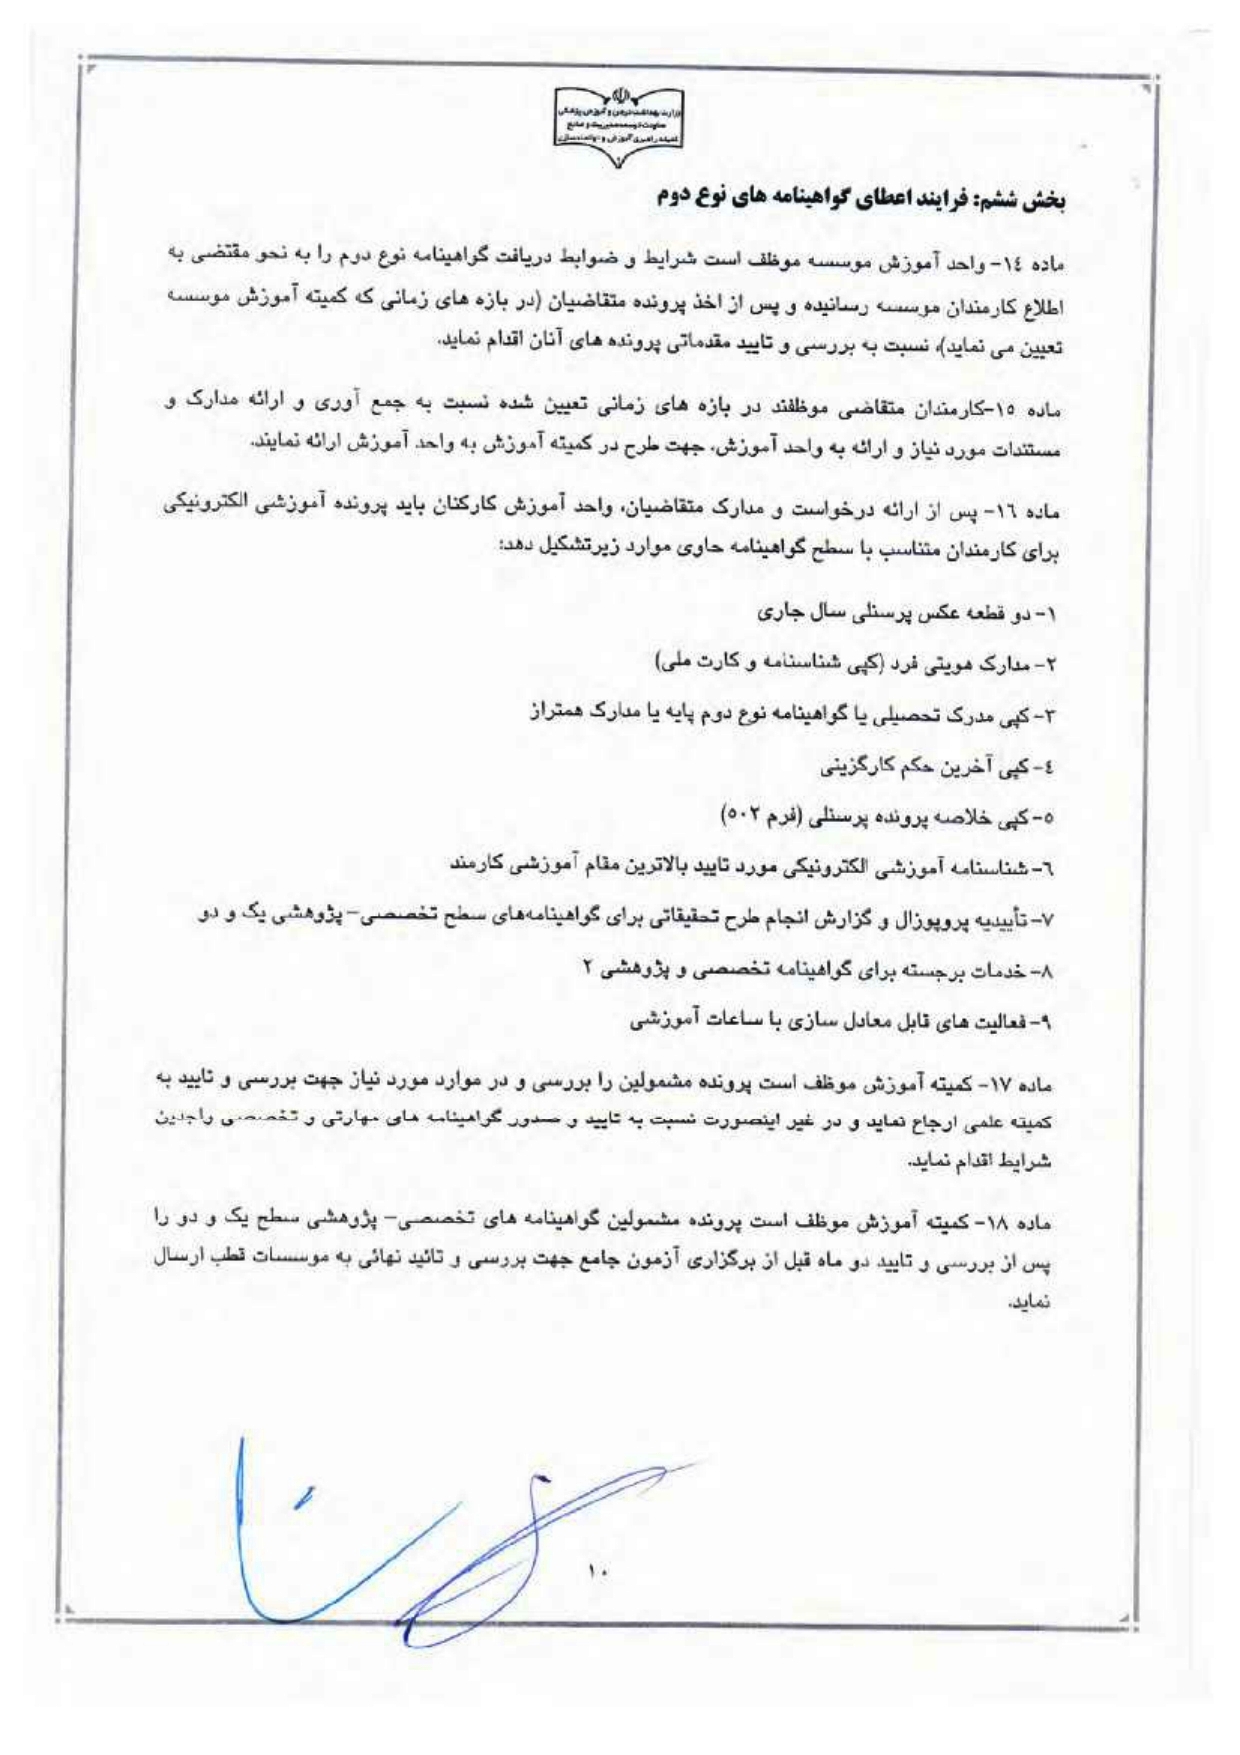 وزارت بهداشت، درمان و آموزش پزشکی
معاونت توسعه مدیریت و منابع
کمیته راهبری آموزش و توانمندسازی
بخش ششم: فرایند اعطای گواهینامه های نوع دوم
ماده ١٤- واحد آموزش موسسه موظف است شرایط و ضوابط دریافت گواهینامه نوع دوم را به نحو مقتضی به
اطلاع کارمندان موسسه رسانیده و پس از اخذ پرونده متقاضیان (در بازه های زمانی که کمیته آموزش موسسه
تعیین می نماید)، نسبت به بررسی و تایید مقدماتی پرونده های آنان اقدام نماید.
ماده ١٥-کارمندان متقاضی موظفند در بازه های زمانی تعیین شده نسبت به جمع آوری و ارائه مدارک و
مستندات مورد نیاز و ارائه به واحد آموزش، جهت طرح در کمیته آموزش به واحد آموزش ارائه نمایند.
ماده ١٦- پس از ارائه درخواست و مدارک متقاضیان، واحد آموزش کارکنان باید پرونده آموزشی الکترونیکی
برای کارمندان متناسب با سطح گواهینامه حاوی موارد زیرتشکیل دهد:
١- دو قطعه عکس پرسنلی سال جاری
٢- مدارک هویتی فرد (کپی شناسنامه و کارت ملی)
٣- کپی مدرک تحصیلی یا گواهینامه نوع دوم پایه یا مدارک همتراز
٤- کپی آخرین حکم کارگزینی
٥- کپی خلاصه پرونده پرسنلی (فرم ٥٠٢)
٦- شناسنامه آموزشی الکترونیکی مورد تایید بالاترین مقام آموزشی کارمند
٧- تأییدیه پروپوزال و گزارش انجام طرح تحقیقاتی برای گواهینامه‌های سطح تخصصی- پژوهشی یک و دو
٨- خدمات برجسته برای گواهینامه تخصصی و پژوهشی ٢
٩- فعالیت های قابل معادل سازی با ساعات آموزشی
ماده ١٧- کمیته آموزش موظف است پرونده مشمولین را بررسی و در موارد مورد نیاز جهت بررسی و تایید به
کمیته علمی ارجاع نماید و در غیر اینصورت نسبت به تایید و صدور گواهینامه های مهارتی و تخصصی واجدین
شرایط اقدام نماید.
ماده ١٨- کمیته آموزش موظف است پرونده مشمولین گواهینامه های تخصصی- پژوهشی سطح یک و دو را
پس از بررسی و تایید دو ماه قبل از برگزاری آزمون جامع جهت بررسی و تائید نهائی به موسسات قطب ارسال
نماید.
١٠